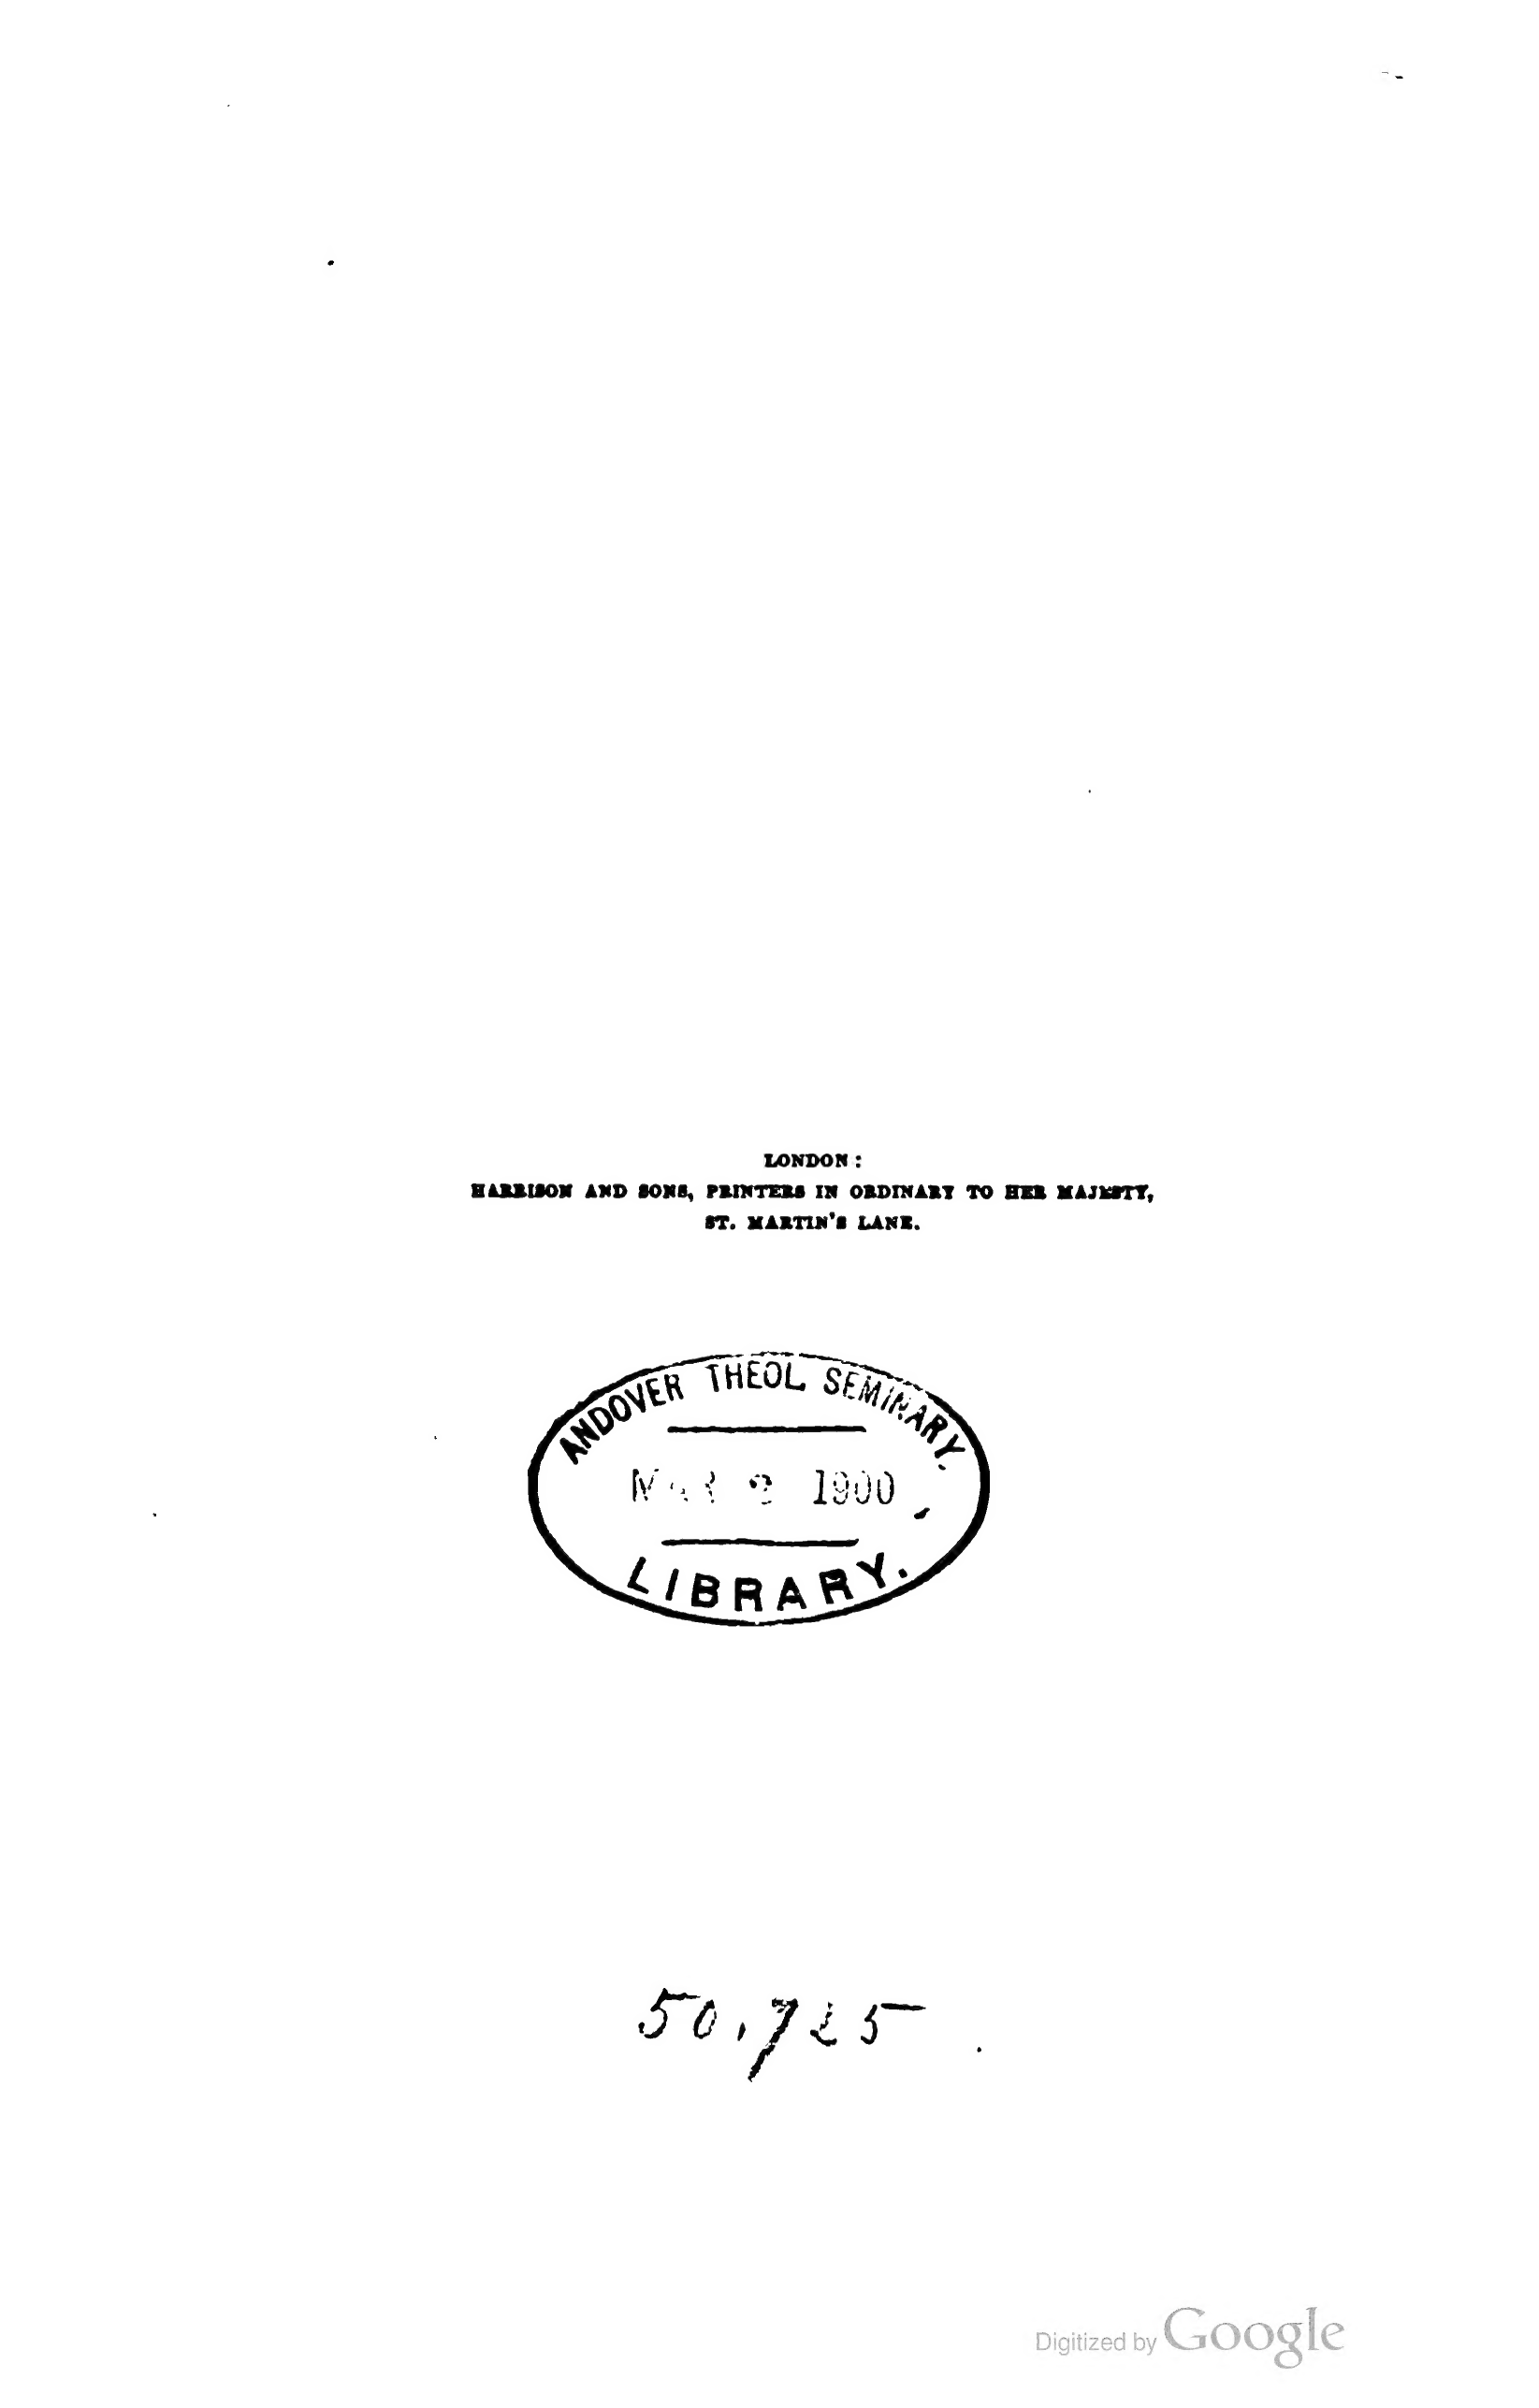 LONDON:
HARRISON AND SONS, PRINTERS IN ORDINARY TO HER MAJESTY,
ST. MARTIN'S LANE.
ANDOVER THEOL. SEMINARY.
MAR 1900
LIBRARY.
50,725
Digitized by Google